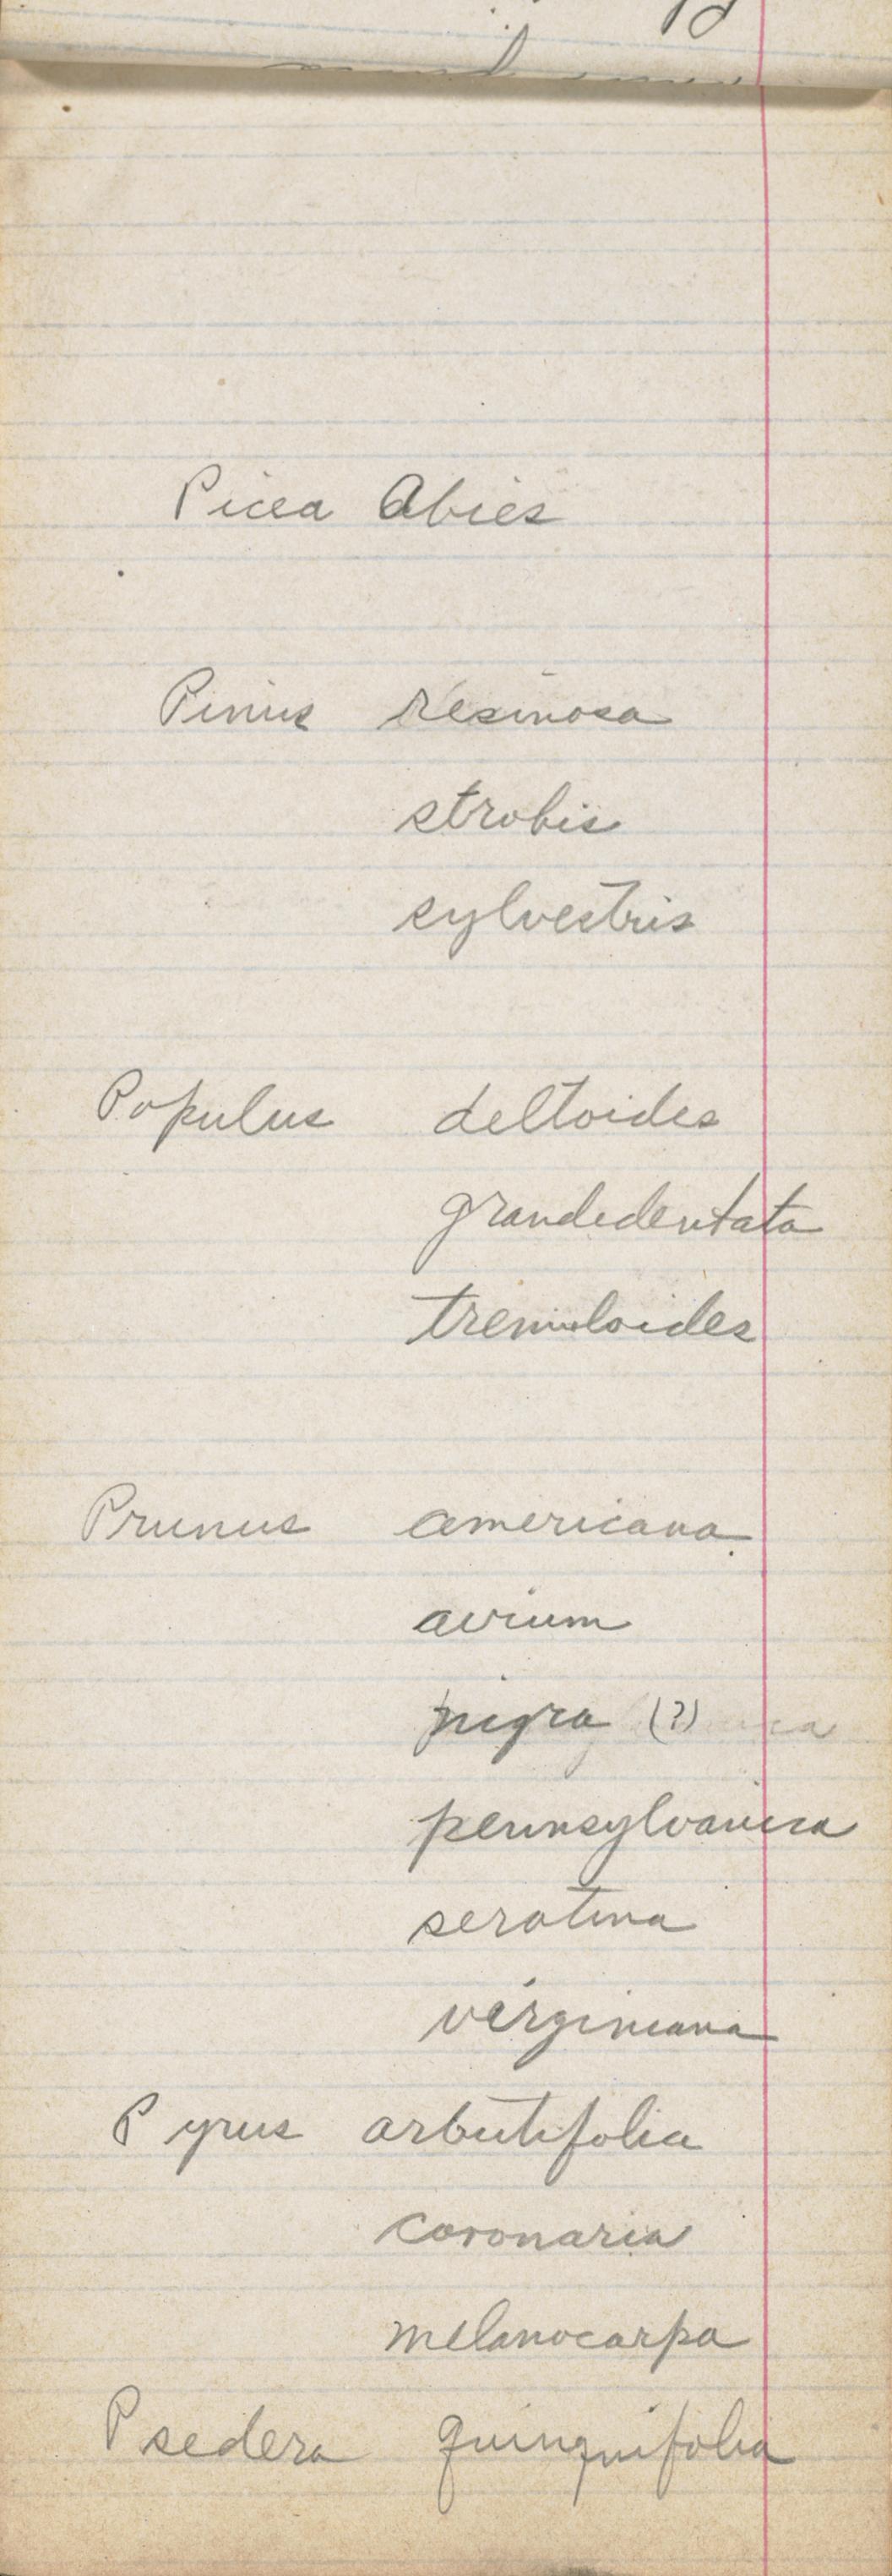 Picea Abies
Pinus resinosa
strobis
sylvestris
Populus deltoides
grandidentata
tremuloides
Prunus americana
avium
nigra (?)
pennsylvanica
serotina
virginiana
Pyrus arbutifolia
coronaria
melanocarpa
Psedera quinquifolia